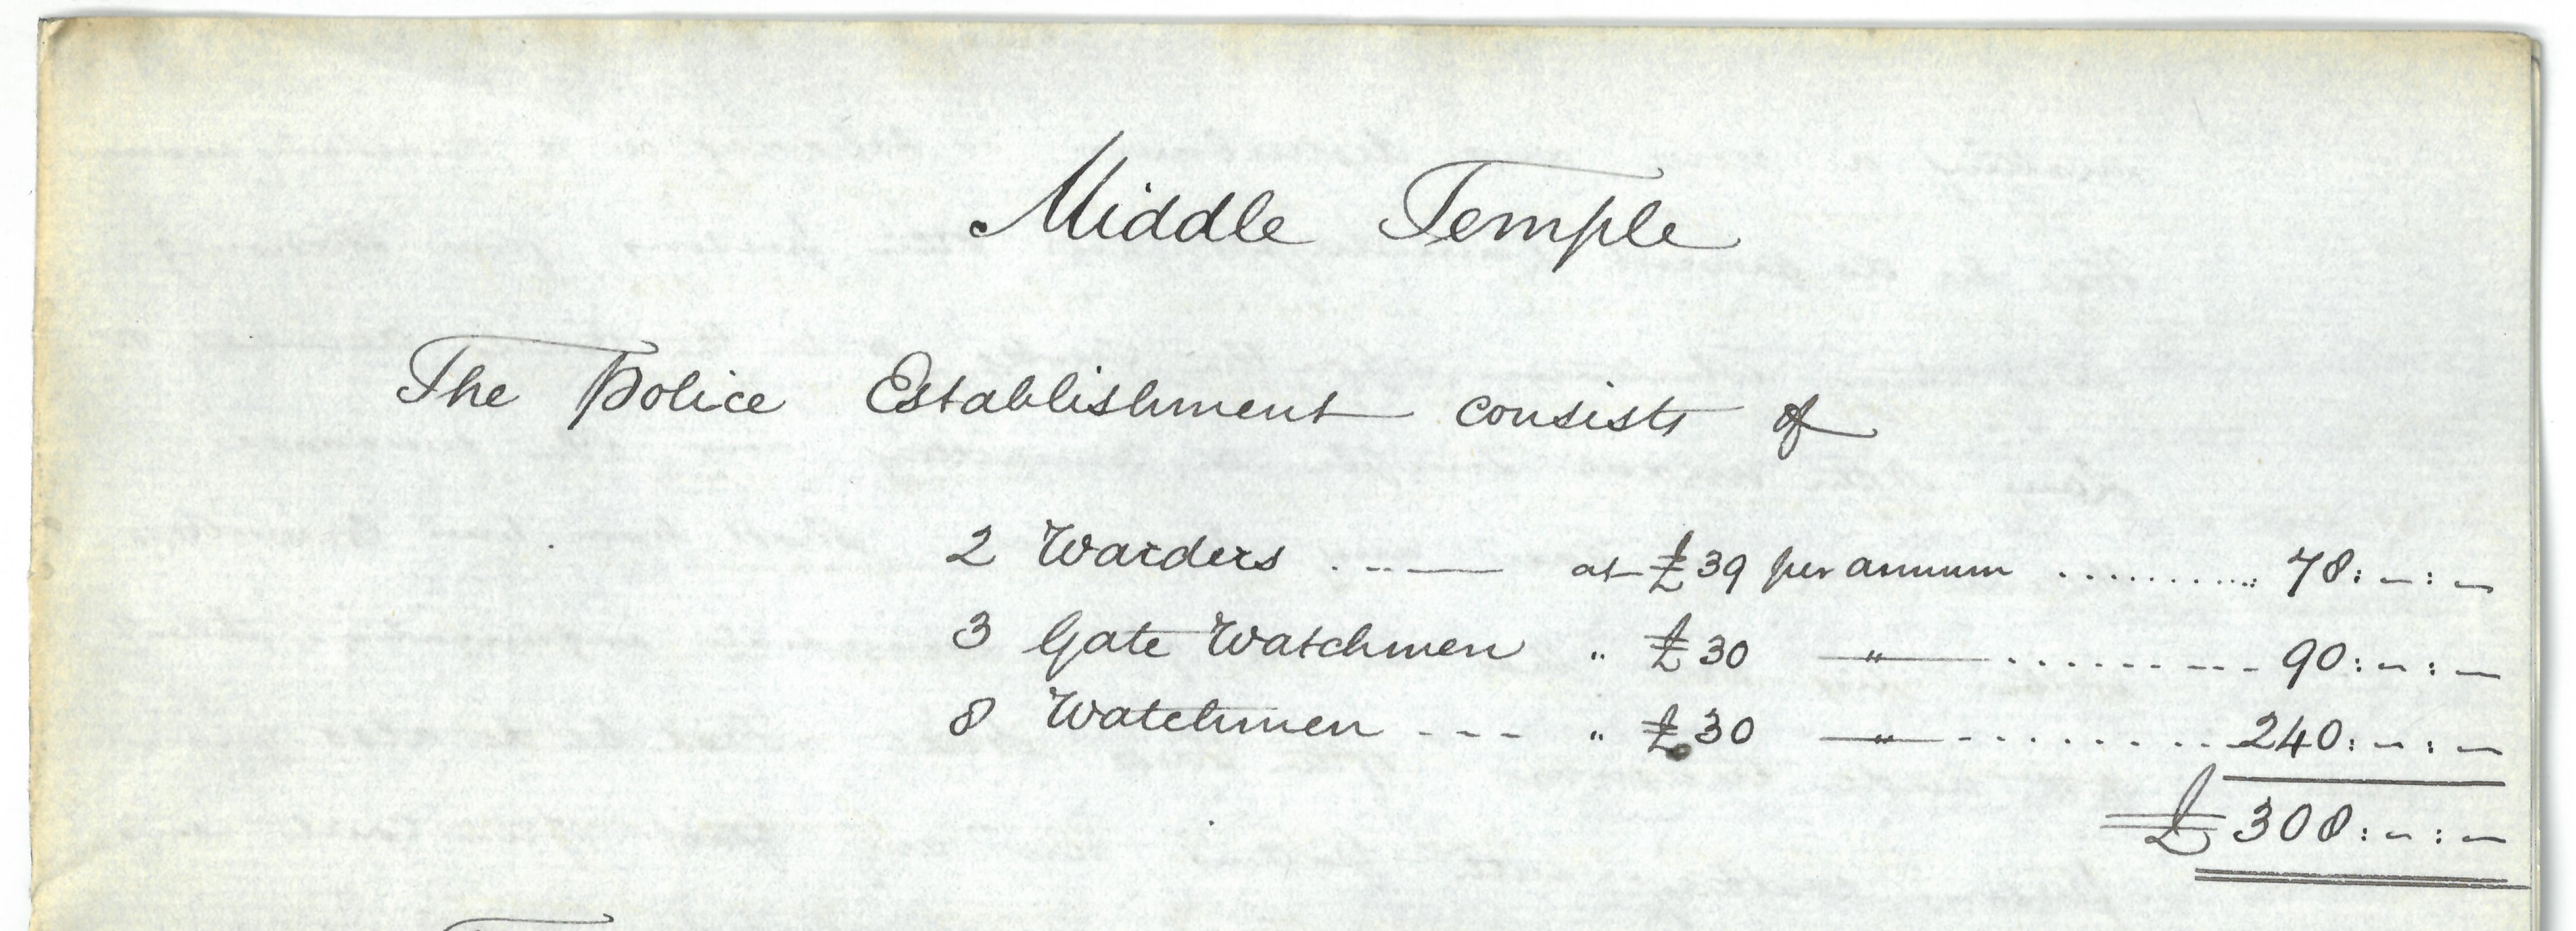 Middle Temple
The Police Establishment consists of
2 Warders . -- — at £39 per annum .......... 78:-:-
3 Gate Watchmen " £30 —"— .......... 90:-:-
8 Watchmen --- " £30 —"— .......... 240:-:-
£308:-:-